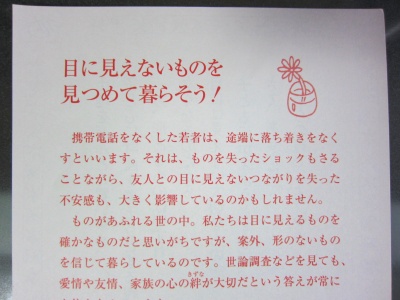 目に見えないものを
見つめて暮らそう！
携帯電話をなくした若者は、途端に落ち着きをなく
すといいます。それは、ものを失ったショックもさる
ことながら、友人との目に見えないつながりを失った
不安感も、大きく影響しているのかもしれません。
ものがあふれる世の中。私たちは目に見えるものを
確かなものだと思いがちですが、案外、形のないもの
を信じて暮らしているのです。世論調査などを見ても、
愛情や友情、家族の心の絆が大切だという答えが常に